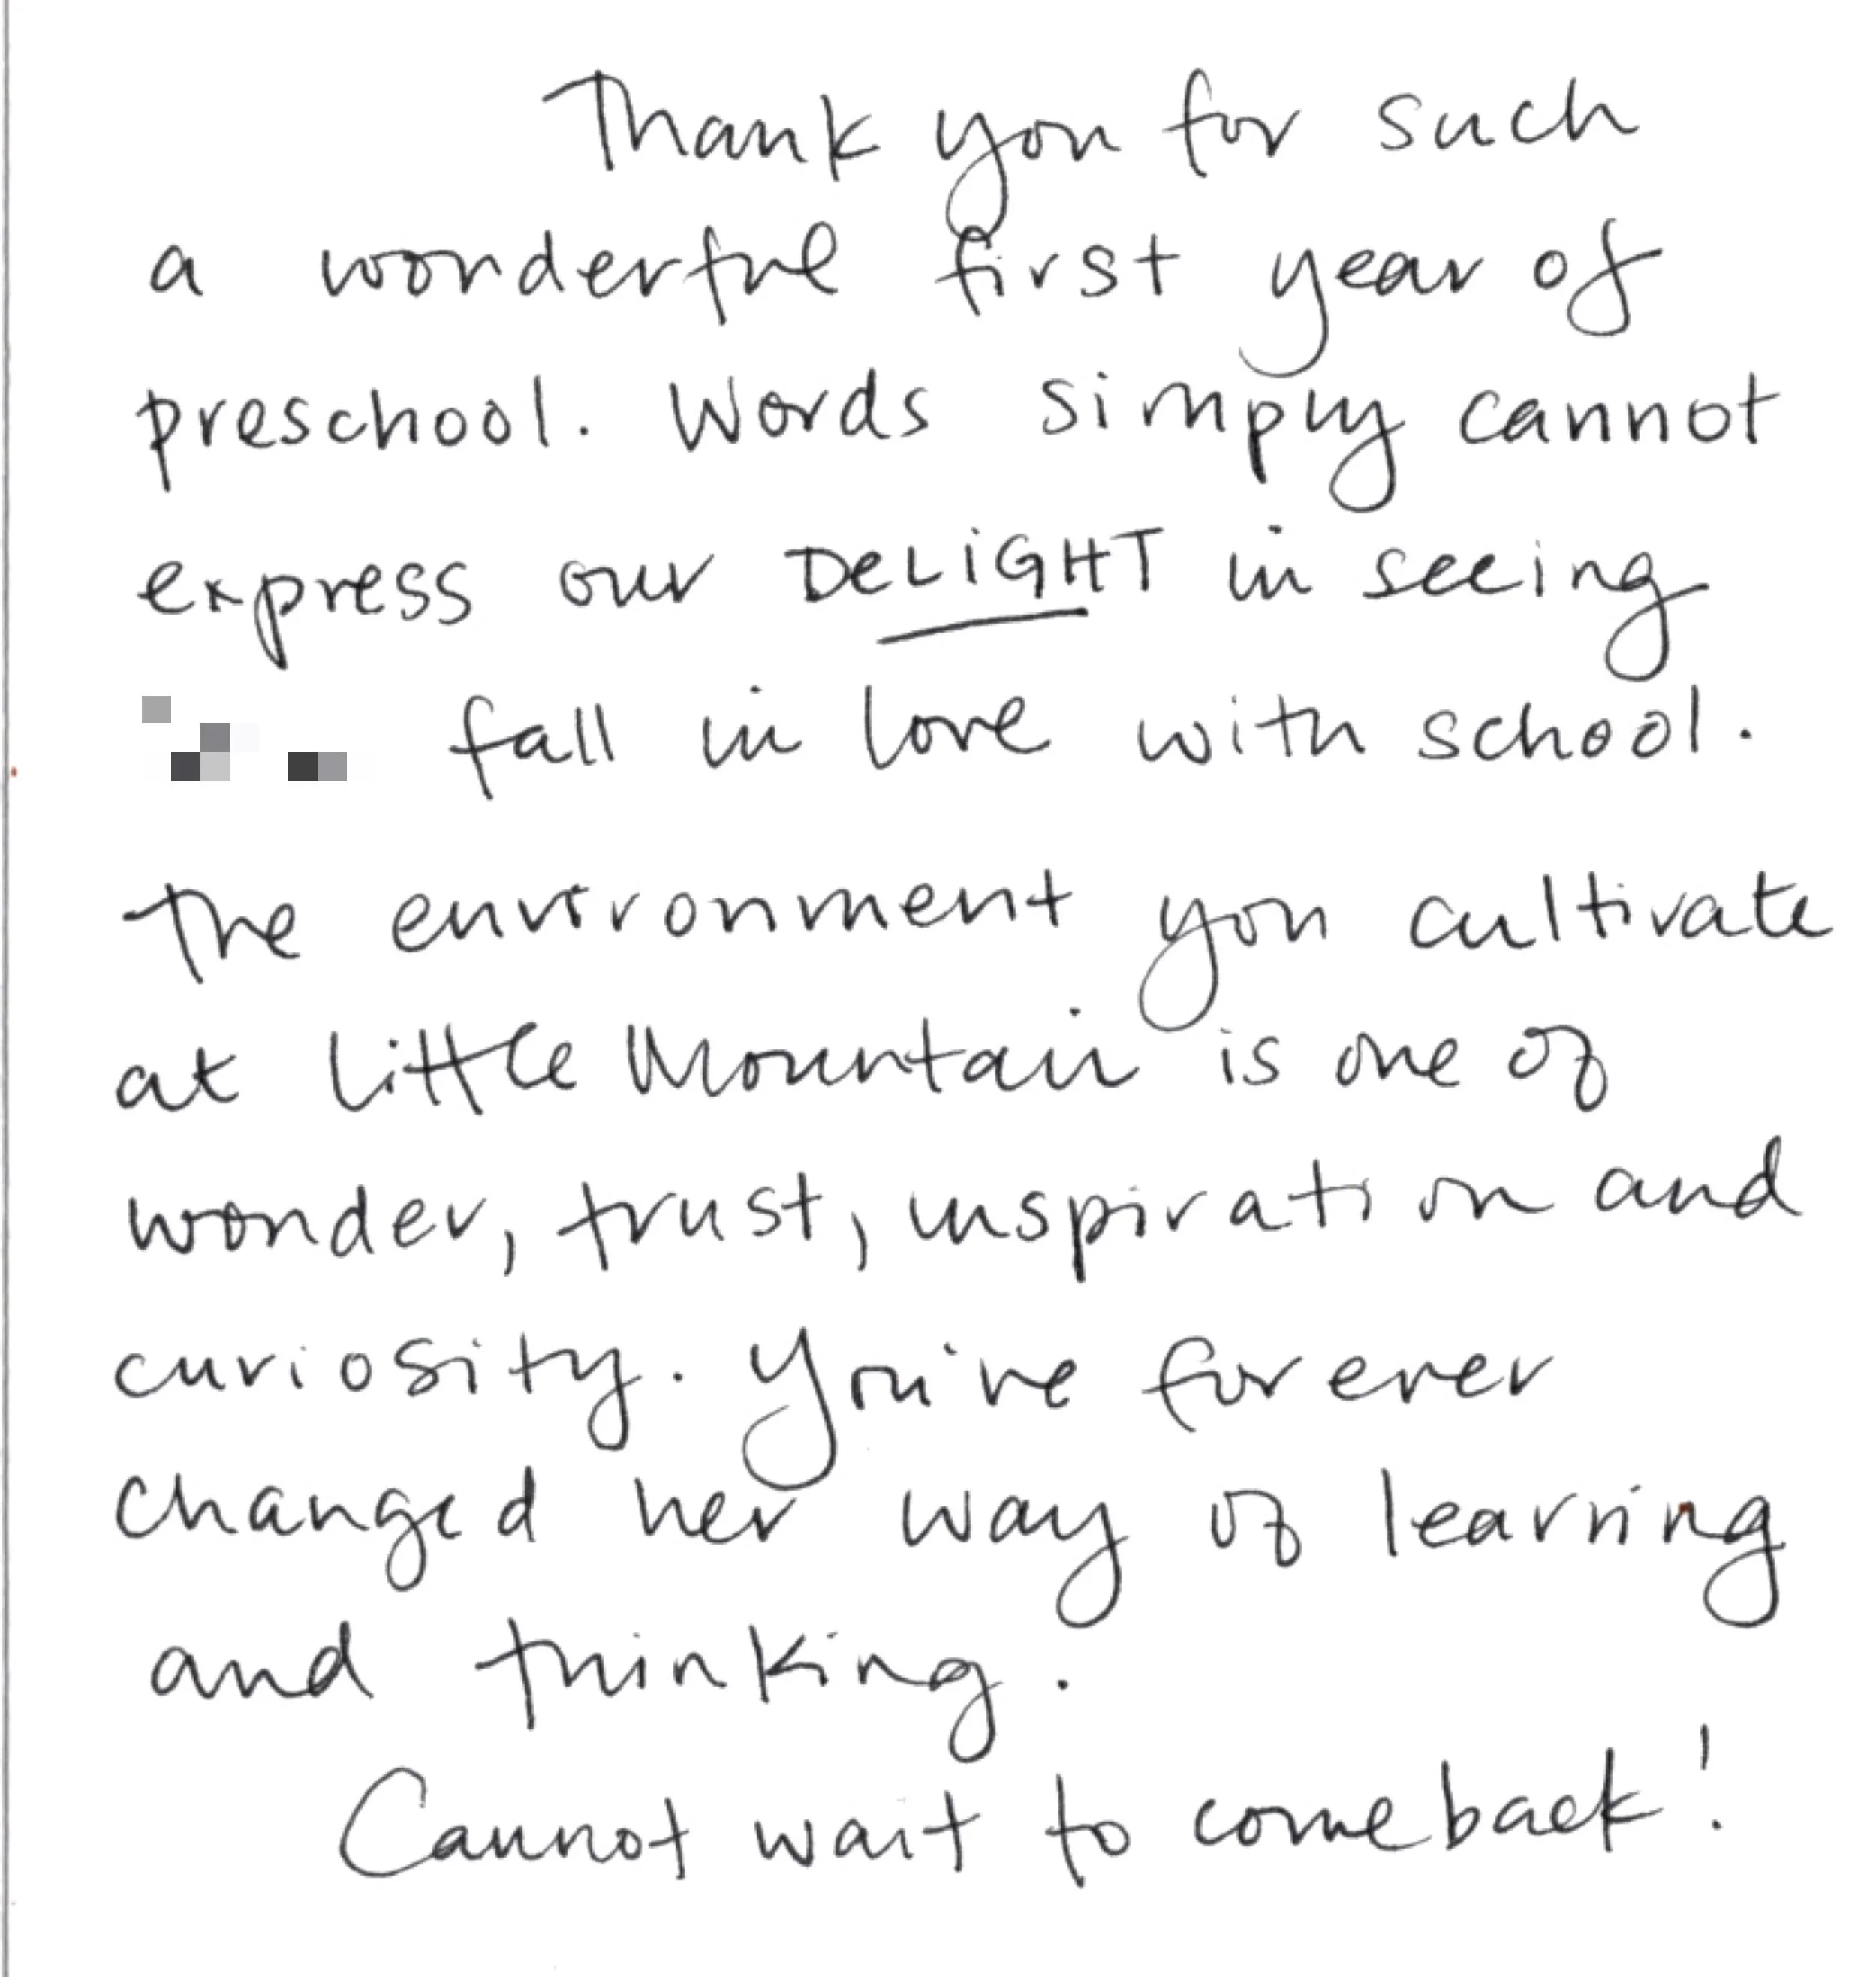 Thank you for such
a wonderful first year of
preschool. Words simply cannot
express our DELIGHT in seeing
fall in love with school.
The environment you cultivate
at Little Mountain is one of
wonder, trust, inspiration and
curiosity. You've forever
changed her way of learning
and thinking.
Cannot wait to come back!